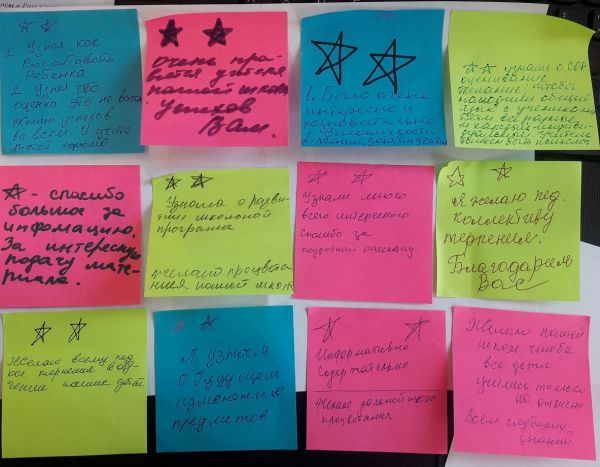 1 Узнал как
воспитовать
Ребенка
2 Узнал что
оценка это не важно
Желаю успехов
во всем. И учить
детей хорошо
очень нра-
вятся учителя
нашой школы
успехов
Вам.
1. Было очень
интересно и
познавательно
2.
узнали о СОР
оценивание
желание, чтобы
находили общий
язык с учениками
Дети все разные
- спасибо
больша за
инфомацию.
За интерескую
подачу мате-
риала.
Узнала о разви-
тии школьной
программа.
желаю процвета
ния нашой школе
Узнали много
всего интересного
Спасибо за
подробный рассказ.
Я желаю пед.
коллективу
терпения.
Благодарим
Вас
Желаю всему пед
кол терпение в обу-
чение наших детей
Я узнал
о будущем
изменение
предметов
Информативно
Содержательно
Желаю дальнейшего
процветания
Желаю нашей
школе чтобы
все дети
учились только
на отлично
Всем глубоких
знаний.